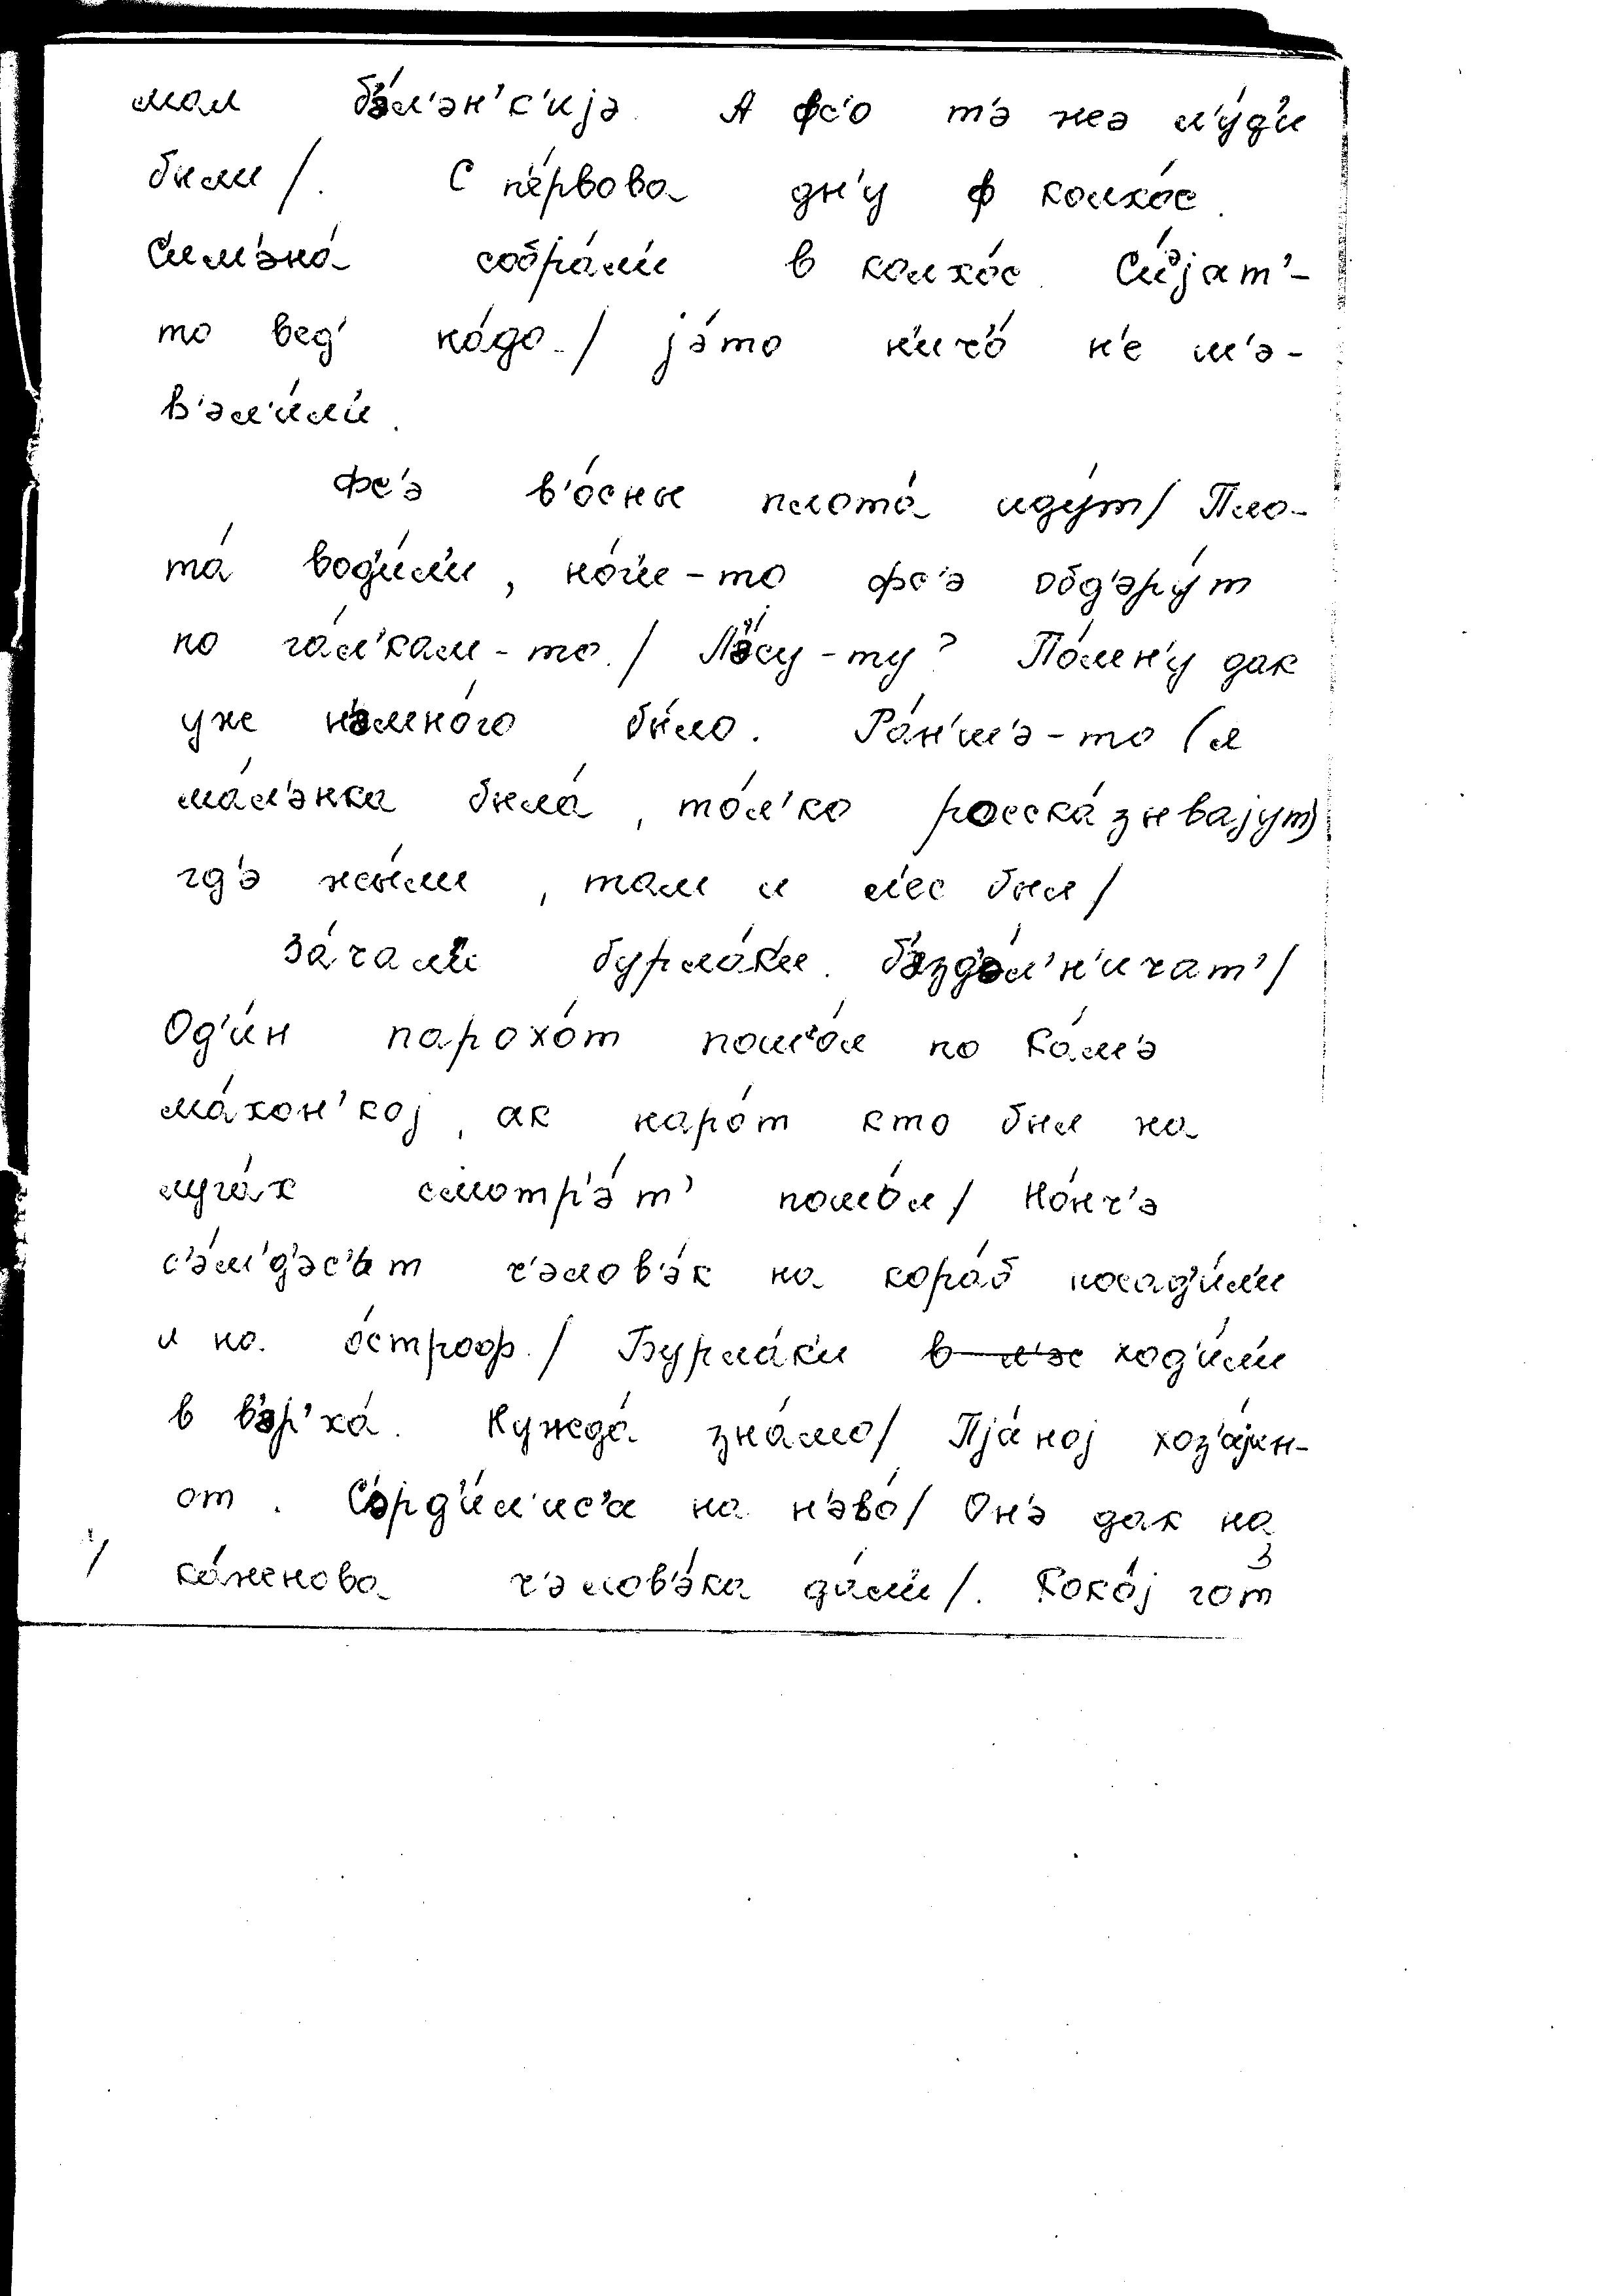 мол б'э́л'эн'к'ијэ. А фс'о т'э жеэ л'у́д'и
были /. С п'е́рвова дн'у ф колхо́с.
С'им'эна́ собра́л'и в колхо́с. С'и́эјат'-
то вед' на́до. / ја́то н'ич'о́ н'е ш'э-
в'эл'и́л'и.
Фс'э в'о́сны плота́ иду́т / Пло-
та́ вод'и́л'и, но́г'и-то фс'э обд'эру́т
по га́л'кам-то. / Л'э́су-ту? По́мн'у дак
уже н'эмно́го бы́ло. Ра́н'ш'э-то (я
ма́л'энка была́, то́л'ко росска́зывајут)
гд'э жы́ли, там и л'ес был /
За́чал'и бурла́к'и. б'эзд'э́л'н'ичат' /
Од'и́н парохо́т пош'о́л по Ка́м'э
ма́хон'кој, ак наро́т кто был на
луга́х смотр'э́т' пошо́л / Но́нч'э
с'э́м'д'эс'ат ч'элов'э́к на кора́б посад'и́л'и
и на о́строф. / Бурла́к'и в л'эс ход'и́л'и
в в'эр'ха́. Нужда́ зна́мо / Пја́ној хоз'а́јин-
от. С'эрд'и́л'ис'а на н'эво́ / Он'э дак на
ка́жнова ч'элов'э́ка да́л'и /. Кокој гот
3